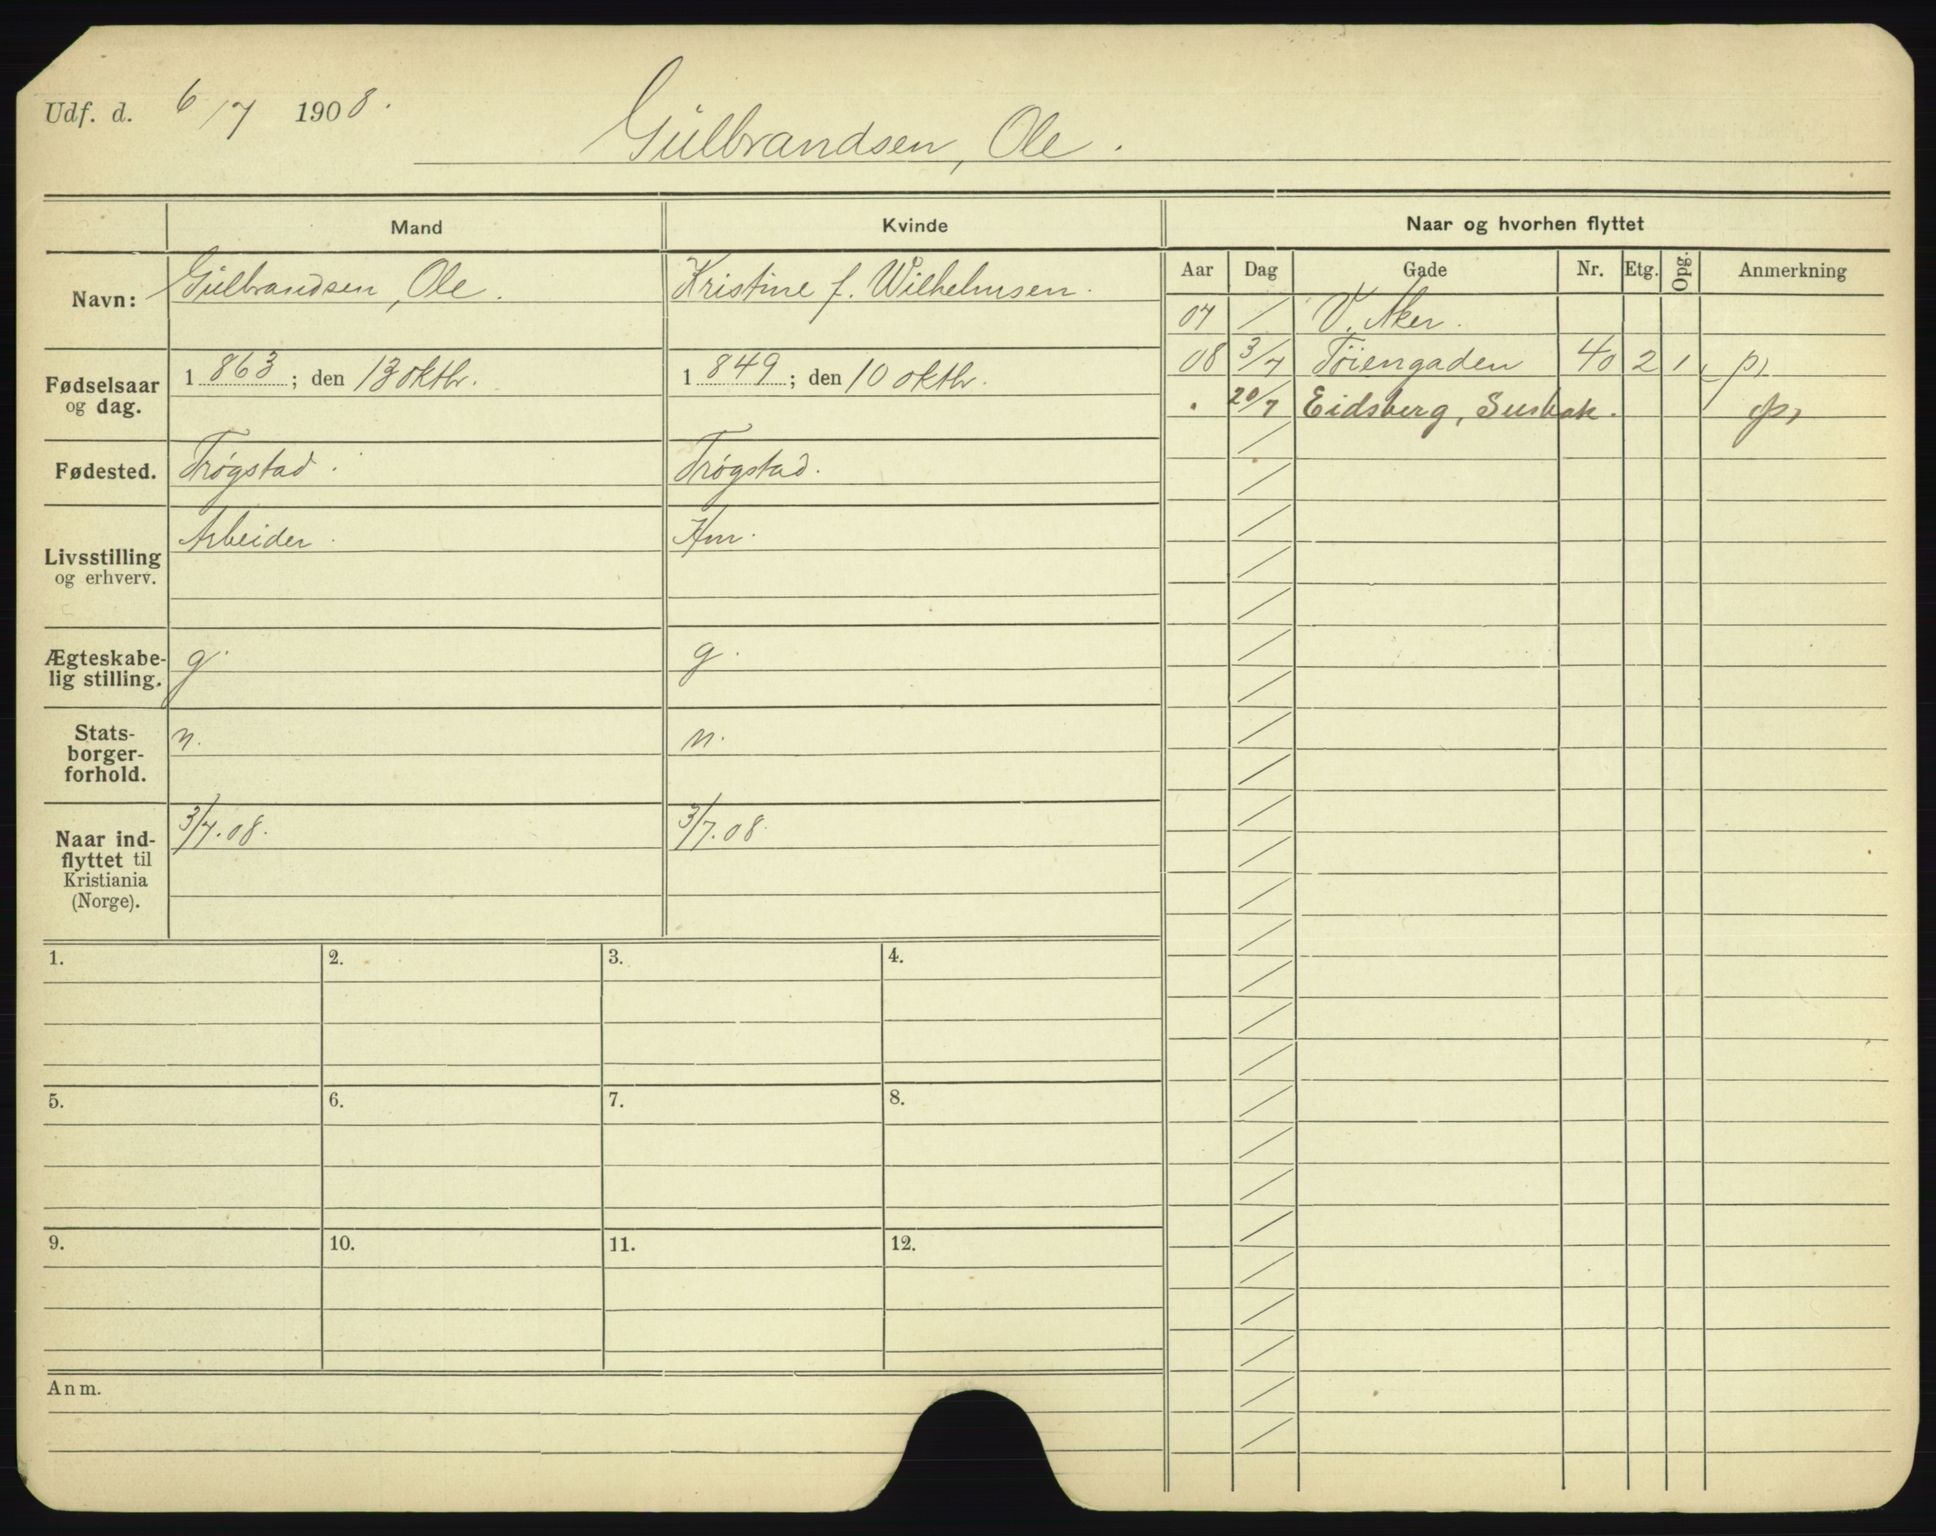 Udf. d. 6/7 1908.
Gulbrandsen, Ole.
Mand Kvinde Naar og hvorhen flyttet
Aar Dag Gade Nr. Etg. Opg. Anmerkning
Navn: Gulbrandsen, Ole. Kristine f. Wilhelmsen.
07 / V. Aker.
08 3/7 Töiengaden 40 2 1 p,
Fødselsaar og dag. 1863; den 13 oktbr. 1849; den 10 oktbr.
" 20/7 Eidsberg, Susbak. p,
Fødested. Trøgstad. Trøgstad.
Livsstilling og erhverv. Arbeider. Hm.
Ægteskabelig stilling. g. g.
Statsborgerforhold. n. n.
Naar indflyttet til Kristiania (Norge). 3/7.08. 3/7.08.
1. 2. 3. 4.
5. 6. 7. 8.
9. 10. 11. 12.
Anm.